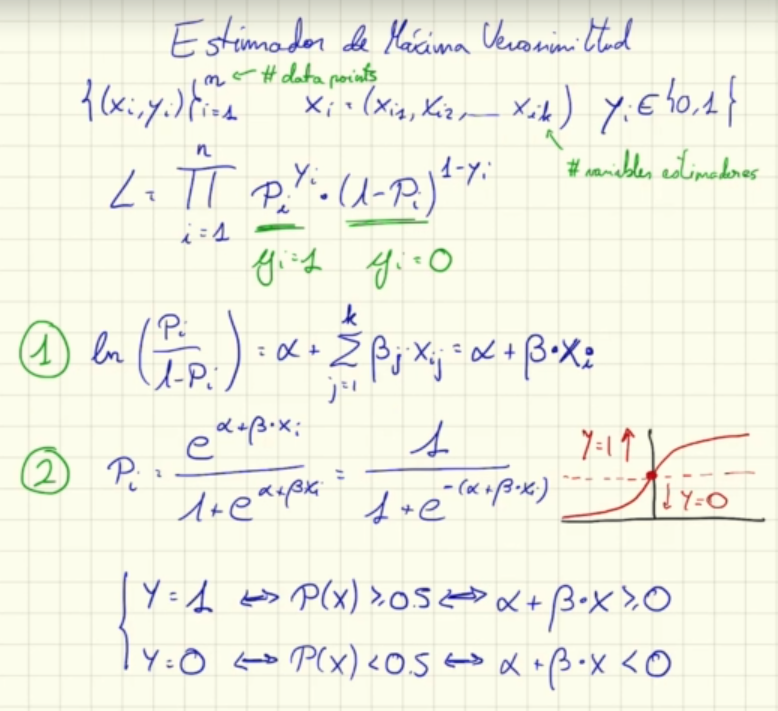 Estimador de Máxima Verosimilitud
{(xi, yi)}ⁿi=1 ← # data points   xi = (xi1, xi2, ... xik)   yi ∈ {0,1}
# variables estimadoras
L = ∏ⁿi=1 Pi^yi · (1-Pi)^(1-yi)
yi=1   yi=0
① ln (Pi / (1-Pi)) = α + Σᵏj=1 βj xij = α + β·xi
② Pi = e^(α+β·xi) / (1+e^(α+βxi)) = 1 / (1+e^(-(α+β·xi)))
Y=1 ↑
↓ Y=0
{ Y = 1 ⟺ P(x) ≥ 0.5 ⟺ α + β·x ≥ 0
Y = 0 ⟺ P(x) < 0.5 ⟺ α + β·x < 0